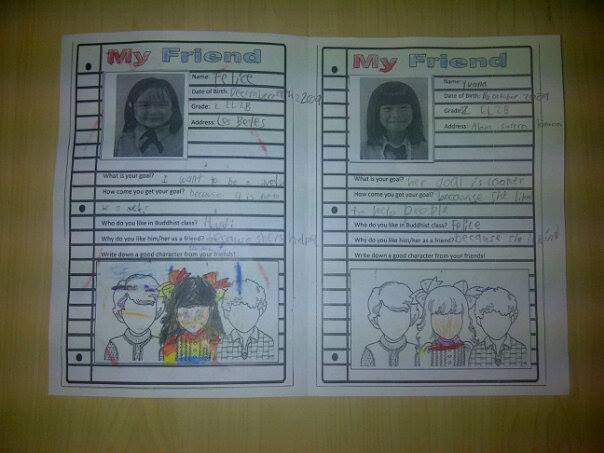 My Friend
Name: Felice
Date of Birth: December
Grade: 2 EL2B
Address: Los Beles
What is your goal? I want to be a
How come you get your goal? because
Who do you like in Buddhist class?
Why do you like him/her as a friend? because she is
Write down a good character from your friends!
My Friend
Name: Yvona
Date of Birth: october 2009
Grade: 2 EL2B
Address: Alam
What is your goal? her goal is cooner
How come you get your goal? becaouse she like
to help people
Who do you like in Buddhist class? Felice
Why do you like him/her as a friend? because she is kind
Write down a good character from your friends!